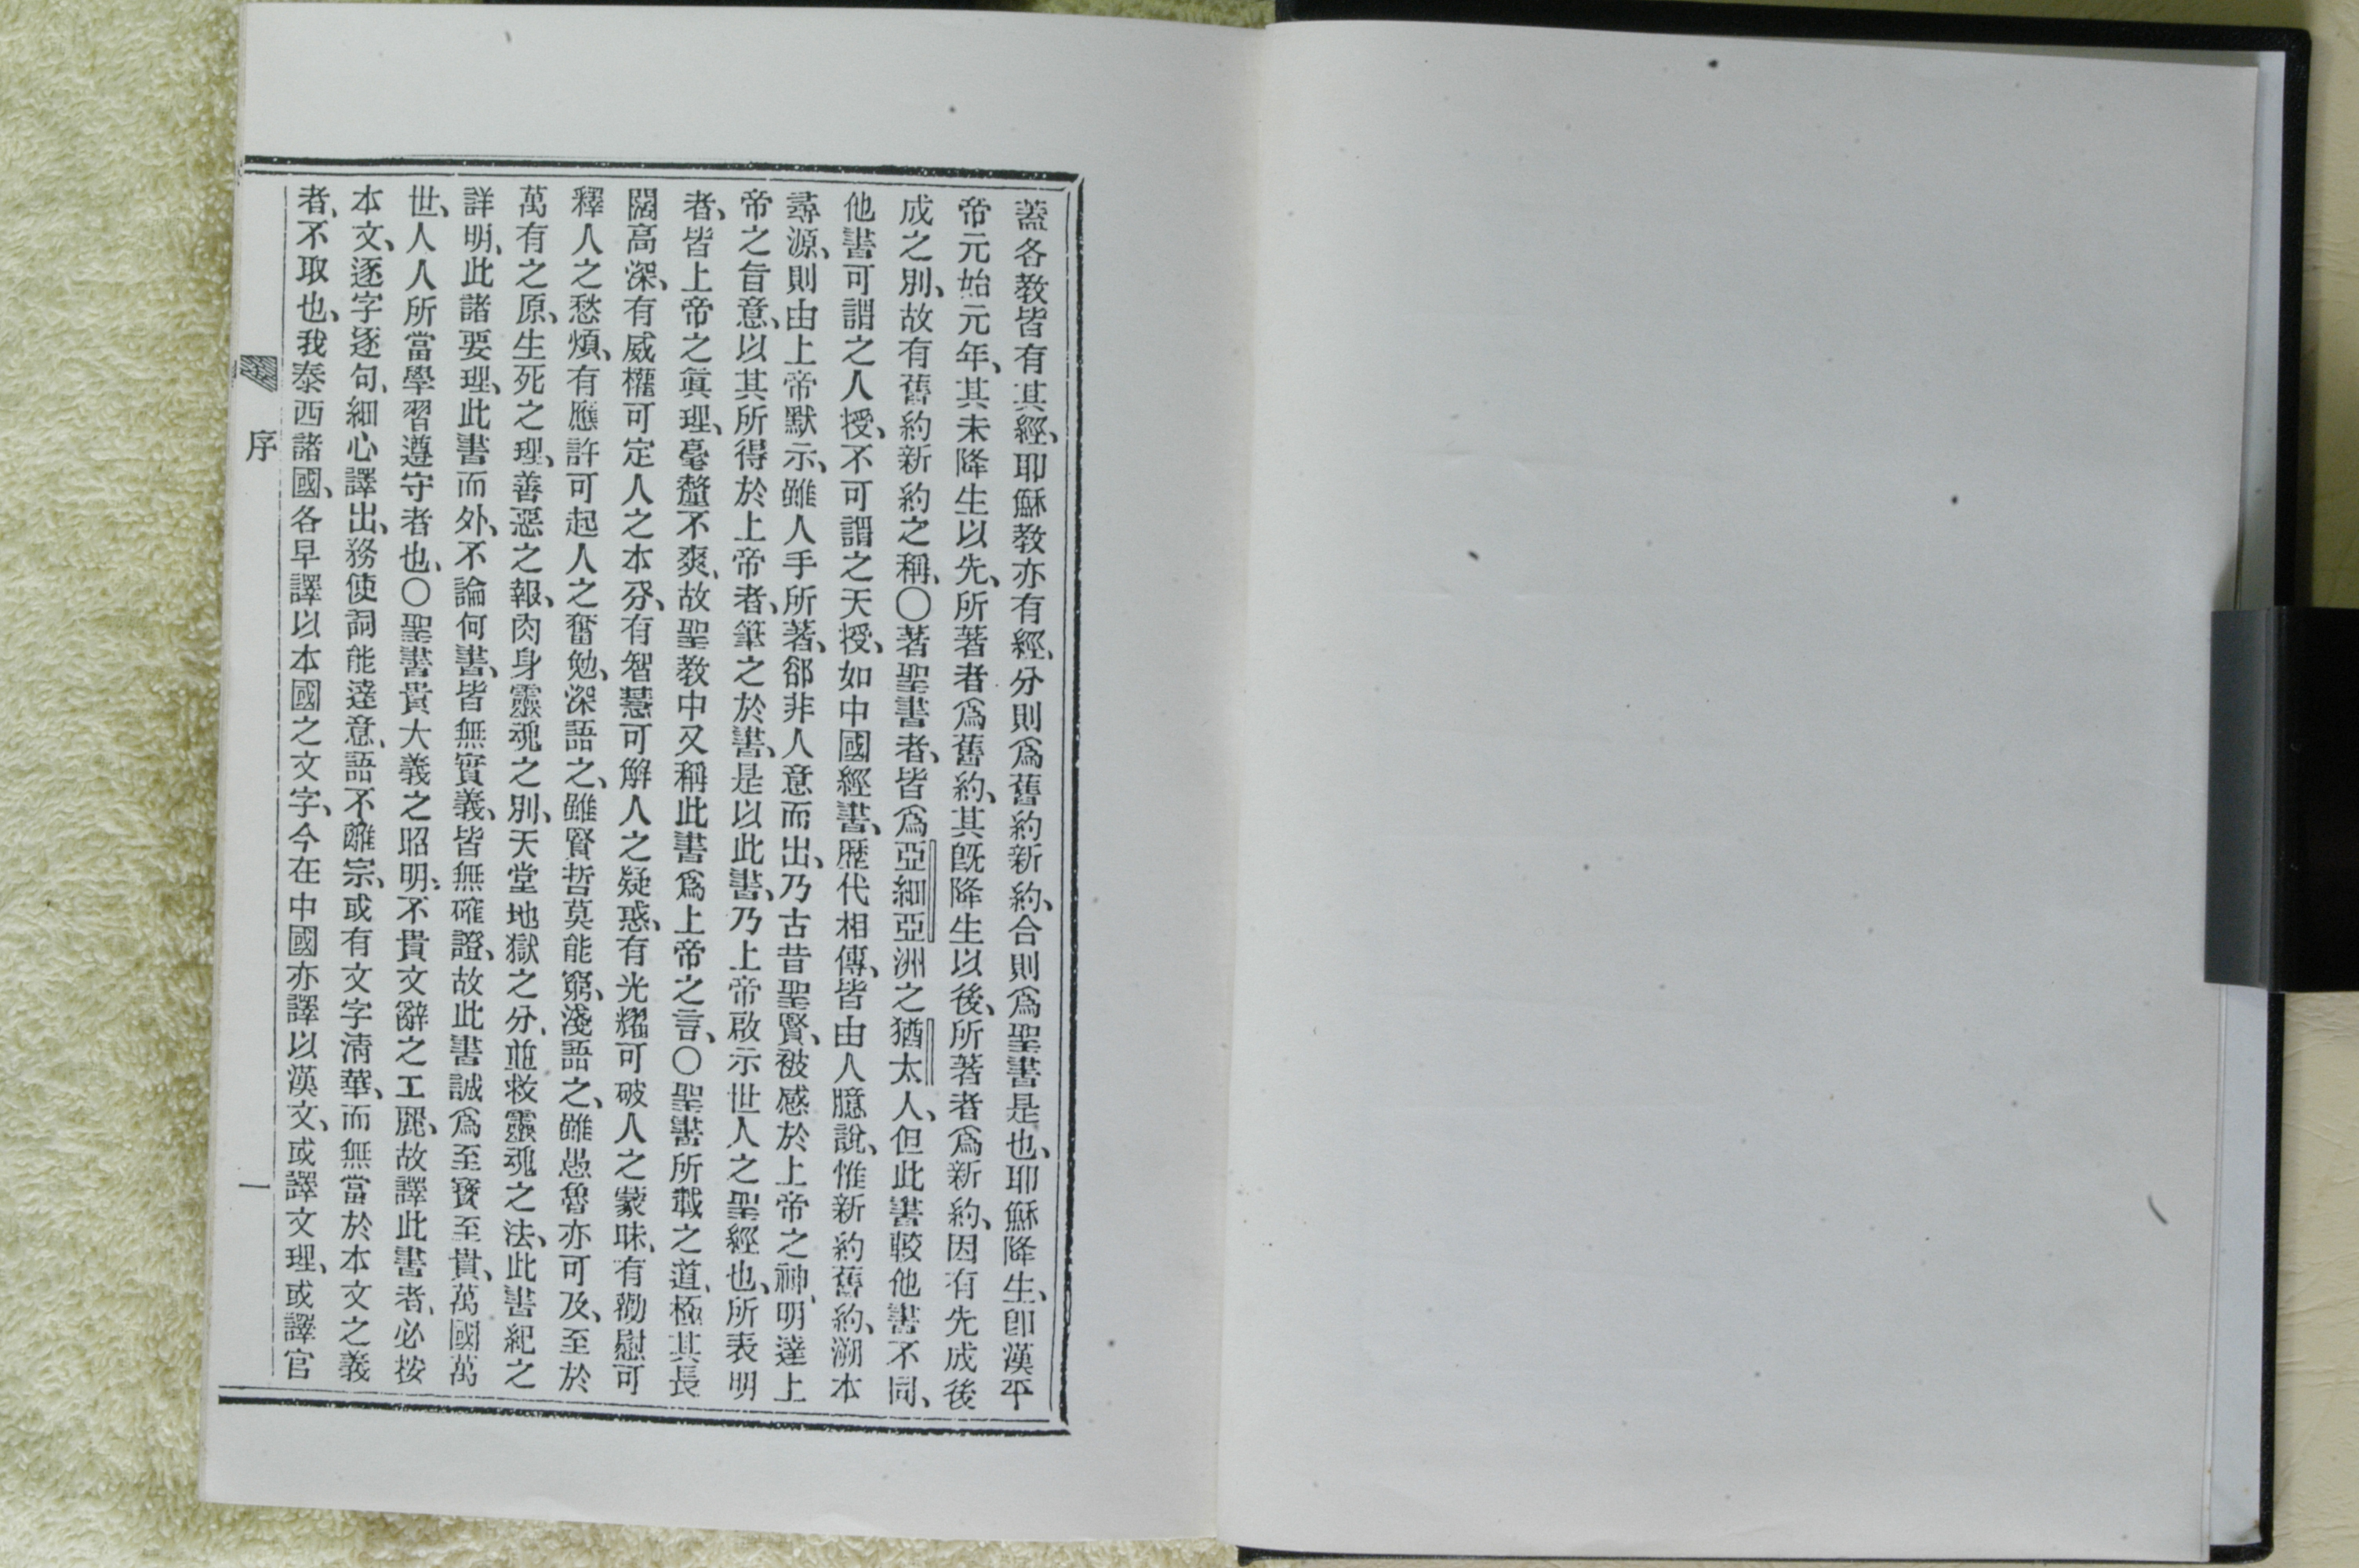 蓋各教皆有其經、耶穌教亦有經、分則爲舊約新約、合則爲聖書是也、耶穌降生、卽漢平
帝元始元年、其未降生以先、所著者爲舊約、其旣降生以後、所著者爲新約、因有先成後
成之別、故有舊約新約之稱、〇著聖書者、皆爲亞細亞洲之猶太人、但此書較他書不同、
他書可謂之人授、不可謂之天授、如中國經書、歷代相傳、皆由人臆說、惟新約舊約、溯本
尋源、則由上帝默示、雖人手所著、卻非人意而出、乃古昔聖賢、被感於上帝之神、明達上
帝之旨意、以其所得於上帝者、筆之於書、是以此書、乃上帝啟示世人之聖經也、所表明
者、皆上帝之眞理、毫釐不爽、故聖教中又稱此書爲上帝之言、〇聖書所載之道、極其長
闊高深、有威權可定人之本分、有智慧可解人之疑惑、有光耀可破人之蒙昧、有勸慰可
釋人之愁煩、有應許可起人之奮勉、深語之、雖賢哲莫能窮、淺語之、雖愚魯亦可及、至於
萬有之原、生死之理、善惡之報、肉身靈魂之別、天堂地獄之分、並救靈魂之法、此書紀之
詳明、此諸要理、此書而外、不論何書、皆無實義、皆無確證、故此書誠爲至寶至貴、萬國萬
世、人人所當學習遵守者也、〇聖書貴大義之昭明、不貴文辭之工麗、故譯此書者、必按
本文、逐字逐句、細心譯出、務使詞能達意、語不離宗、或有文字淸華、而無當於本文之義
者、不取也、我泰西諸國、各早譯以本國之文字、今在中國亦譯以漢文、或譯文理、或譯官
序
一